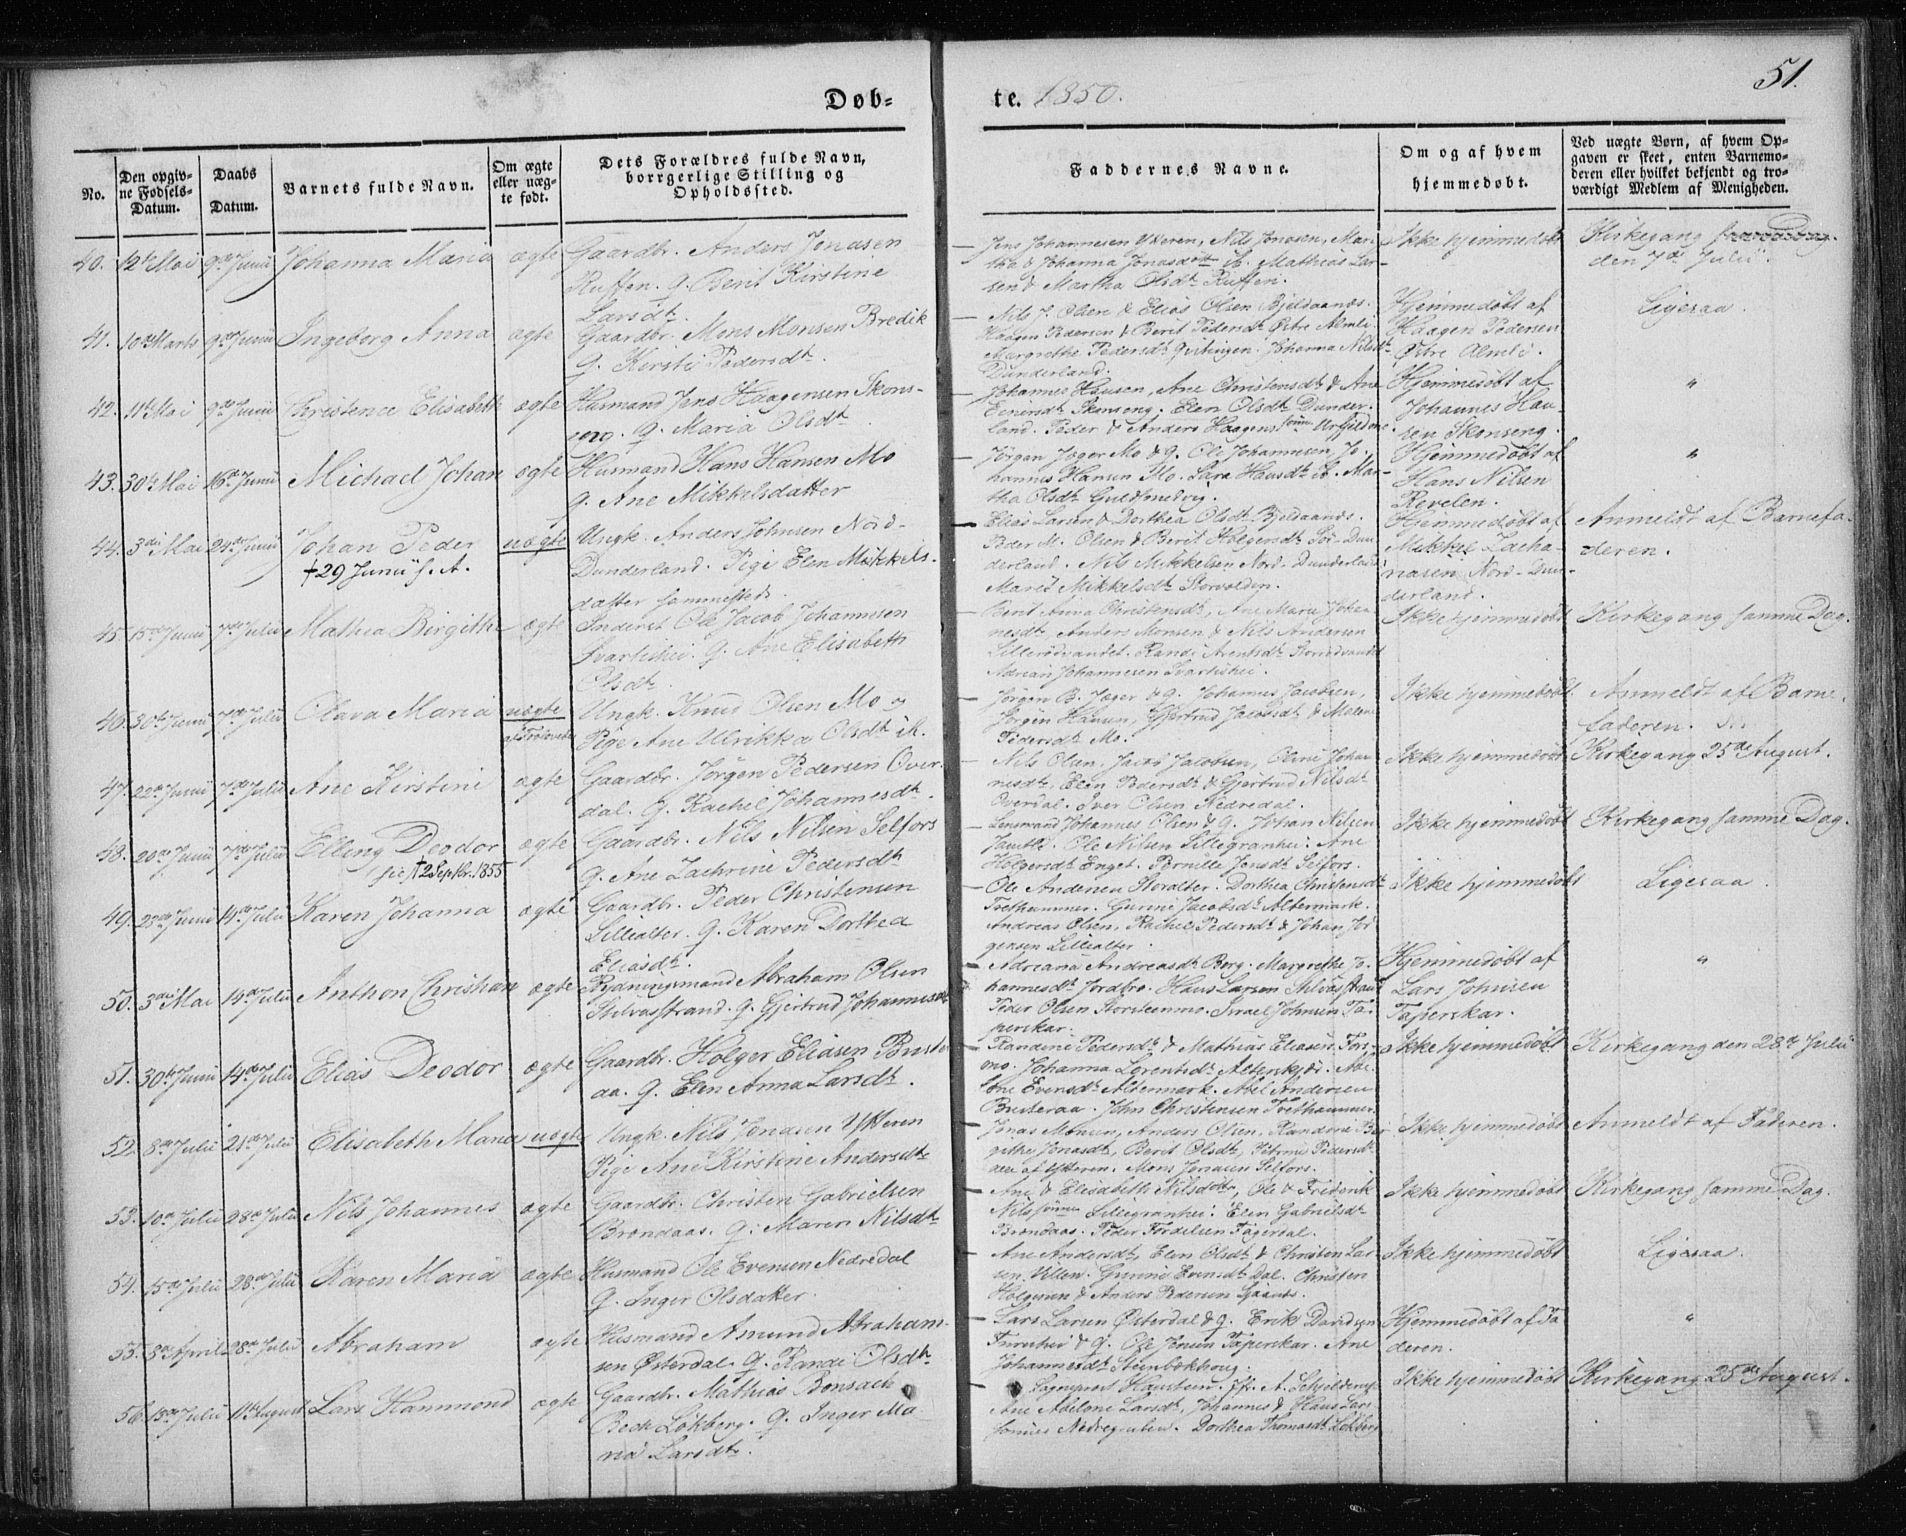 51.
Døb-
te. 1850.
No.
Den opgiv-
ne Fødsels-
Datum.
Daabs
Datum.
Barnets fulde Navn.
Om ægte
eller uæg-
te født.
Dets Forældres fulde Navn,
borrgerlige Stilling og
Opholdssted.
Faddernes Navne.
Om og af hvem
hjemmedøbt.
Ved uægte Børn, af hvem Op-
gaven er skeet, enten Barnemo-
deren eller hvilket bekjendt og tro-
værdigt Medlem af Menigheden.
40. 12te Mai 9de Junii Johanna Maria ægte
Gaardbr. Anders Jonasen
Ruffen. g. Berit Kirstine
Larsdt.
Jens Johannesen Ytteren, Nils Jonasen, Mar-
tha & Johanna Jonasdøttr ib. Mathias Lar-
sen & Martha Olsdt. Ruffen.
Ikke hjemmedøbt
Kirkegang
den 7de Julii.
41. 10de Marts 9de Junii Ingeborg Anna ægte
Gaardbr. Mons Monsen Bredik
g. Kirsti Pedersdt.
Nils J. Olsen & Elias Olsen Bjeldaanæs.
Haagen Pedersen & Berit Pedersdt. Østre Almli.
Margrethe Pedersdt. Johanna Nilsdt.
Dunderland.
Hjemmedøbt af
Haagen Pedersen
Østre Almli.
Ligesaa.
42. 11te Mai 9de Junii Christence Elisabeth ægte
Husmand Jens Haagensen Skons-
eng. g. Maria Olsdt.
Johannes Hansen, Ane Christensdt. & Ane
Skonseng. Elen Olsdt. Dunder-
land. Peder & Anders Haagens
Hjemmedøbt af
Johannes Han-
sen Skonseng.
"
43. 30te Mai 16de Junii Michael Johan ægte
Husmand Hans Hansen Mo
g. Ane Mikkelsdatter
Jørgen Jæger Mo & g. Ole Johannesen Jo-
hannes Hansen Mo. Sara Hansdt. ib. Mar-
tha Olsdt. Guldsmedvig.
Hjemmedøbt af
Hans Nilsen
Revelen.
"
44. 3die Mai 24de Junii Johan Peder uægte
† 29 Junii s. A.
Ungk. Anders Johnsen Nord-
Dunderland. Pige Elen Mikkels-
datter sammesteds.
Elias Larsen & Dorthea Olsdt. Bjeldaanæs.
Peder M. Olsen & Berit Holgersdt. Sør-Dun-
derland. Nils Mikkelsen Nord-Dunderland
Maria Mikkelsdt. Storvolden.
Hjemmedøbt af
Mikkel Zacha-
riasen Nord-Dun-
derland.
Anmeldt af Barnefa-
deren.
45. 15de Junii 7de Julii Mathea Birgithe ægte
Inderst Ole Jacob Johannesen
Svartishei. g. Ane Elisabeth
Olsdt.
Berit Anna Christensdt., Ane Marie Johan-
nesdt. Anders Monsen & Nils Andersen
Lillerødvandet. Randi Arentsdt. Storrødvandet
Adrian Johannesen Svartishei.
Ikke hjemmedøbt
Kirkegang samme Dag.
46. 30te Junii 7de Julii Olava Maria uægte
Ungk. Knud Olsen Mo og
Pige Ane Ulrikka Olsdt. ib.
Jørgen B. Jæger & g. Johannes Jacobsen,
Jørgen Hansen, Gjertrud Jacobsdt. & Malene
Pedersdt. Mo.
Ikke hjemmedøbt.
Anmeldt af Barne-
faderen.
47. 22de Junii 7de Julii Ane Kirstine ægte
Gaardbr. Jørgen Pedersen Over-
dal. g. Rachel Johannesdt.
Nils Olsen, Jacob Jacobsen, Oline Johan-
nesdt., Elen Pedersdt. & Gjertrud Nilsdt.
Overdal. Iver Olsen Nedredal.
Ikke hjemmedøbt
Kirkegang 25de August.
48. 20de Junii 7de Julii Elling Deodor ægte
† 2 Septbr. 1855
Gaardbr. Nils Nilsen Selfors
g. Ane Zachrine Pedersdt.
Lensmand Johannes Olsen & g. Johan Nilsen
Ole Nilsen Lillegranhei. Ane
Holgersdt. Enget. Pernille Jonsdt. Selfors.
Ikke hjemmedøbt
Kirkegang samme Dag.
49. 23de Junii 14de Julii Karen Johanna ægte
Gaardbr. Peder Christensen
Lillealter. g. Karen Dorthea
Eliasdt.
Ole Andersen Storalter. Dorthea Christensdt.
Trethammer. Gunni Jacobsdt. Altermark.
Andreas Olsen, Rachel Pedersdt. & Johan Jør-
gensen Lillealter.
Ikke hjemmedøbt
Ligesaa.
50. 3die Mai 14de Julii Anthon Christian ægte
Rydningsmand Abraham Olsen
Stilvasstrand. g. Gjertrud Johannesdt.
Adriana Andreasdt. Berg. Margrethe Jo-
hannesdt. Jordbro. Hans Larsen Stilvasstrand
Peder Olsen Storsteenmo. Israel Johnsen Ta-
perskar.
Hjemmedøbt af
Lars Johnsen
Taperskar.
"
51. 30te Junii 14de Julii Elias Deodor ægte
Gaardbr. Holger Eliasen Buster-
aa. g. Elen Anna Larsdt.
Randine Pedersdt. & Mathias Eliasen Fors-
mo. Johanna Lorentsdt. Alterskjær. Abe-
lone Evensdt. Altermark. Abel Andersen
Busteraa. John Christensen Trethammer.
Ikke hjemmedøbt
Kirkegang den 28de Julii
52. 8de Julii 21de Julii Elisabeth Maria uægte
Ungk. Nils Jonasen Ytteren
Pige Ane Kirstine Andersdt.
Jonas Monsen, Anders Olsen, Randine Bir-
githe Jonasdt., Berit Olsdt., Pedersdt.
alle af Ytteren. Mons Jonasen Selfors.
Ikke hjemmedøbt
Anmeldt af Faderen.
53. 10de Julii 28de Julii Nils Johannes ægte
Gaardbr. Christen Gabrielsen
Brendaas. g. Maren Nilsdt.
Ane & Elisabeth Nilsdøtr, Ole & Friderik
Nilssønner Lillegranhei. Elen Gabrielsdt.
Brendaas. Peder Fordelsen Fagerdal.
Ikke hjemmedøbt
Kirkegang samme Dag.
54. 15de Julii 28de Julii Karen Maria ægte
Husmand Ole Evensen Nedredal
g. Inger Olsdatter.
Ane Andersdt., Elen Olsdt. & Christen Lar-
sen Gunni Evensdt. Dal. Christen
Holgersen & Anders Pedersen
Ikke hjemmedøbt
Ligesaa.
55. 8de April 28de Julii Abraham ægte
Husmand Amund Abraham-
sen Østerdal. g. Randi Olsdt.
Lars Larsen Østerdal & g. Erik Davidsen
g. Ole Jensen Taperskar. Ane
Johannesdt. Steinbækhoug.
Hjemmedøbt af Fa-
deren.
"
56. 13de Julii 11te August Lars Hammond ægte
Gaardbr. Mathias Bonsach
Bech Løkberg. g. Inger Ma-
ria Larsdt.
Sogneprest
Ane Abelone Larsdt., Johannes & Hans Lars-
sønner Dorthea Thomasdt. Løkberg
Ikke hjemmedøbt
Kirkegang 25de August.